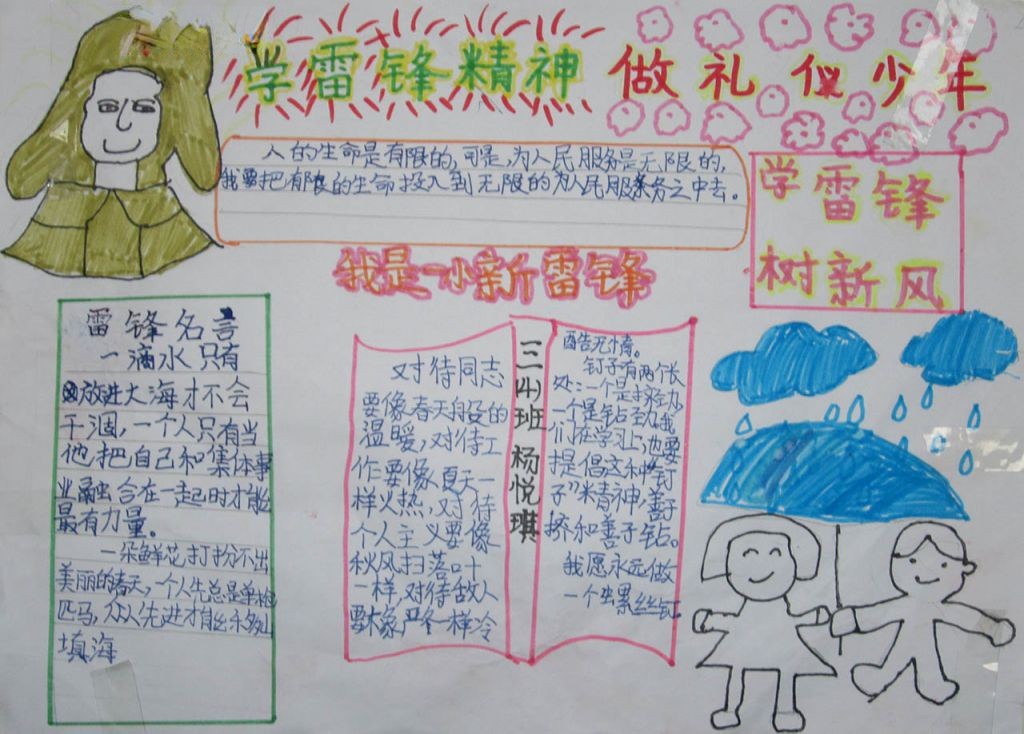 学雷锋精神 做礼仪少年
人的生命是有限的,可是,为人民服务是无限的,
我要把有限的生命投入到无限的为人民服务之中去。
学雷锋
树新风
我是一小新雷锋
雷锋名言
一滴水只有
放进大海才不会
干涸,一个人只有当
他把自己和集体事
业融合在一起时才能
最有力量。
一朵鲜花打扮不出
美丽的春天,个人先总是单枪
匹马,众人先进才能移山
填海
对待同志
要像春天般的
温暖,对待工
作要像夏天一
样火热,对待
个人主义要像
秋风扫落叶
一样,对待敌人
要像严冬一样冷
三(4)班 杨悦琪
酷无情。
钉子有两个长
处:一个是挤劲,
一个是钻劲,我
们在学习上,也要
提倡这种"钉
子"精神,善于
挤和善于钻。
我愿永远做
一个螺丝钉